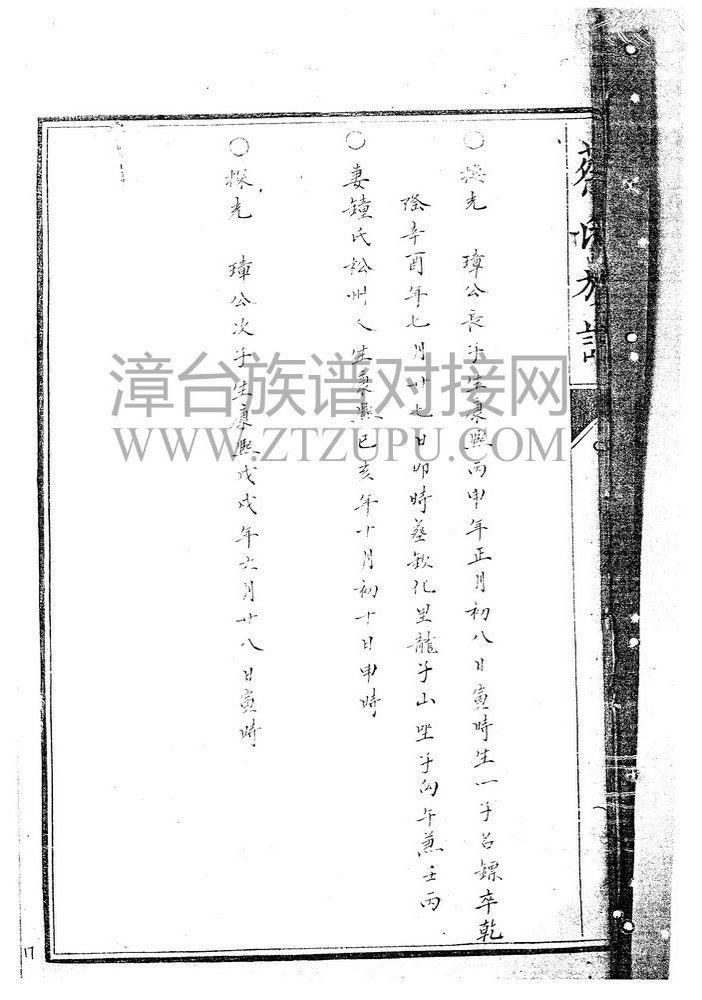 蔡氏族譜
○換光 璋公長子生康熙丙申年正月初八日寅時生一子名鏢卒乾
隆辛酉年七月廿七日卯時葬欽化里龍子山坐子向午兼壬丙
○妻鐘氏松州人生康熙己亥年十月初十日申時
○探光 璋公次子生康熙戊戌年六月廿八日寅時
17
漳台族谱对接网
WWW.ZTZUPU.COM